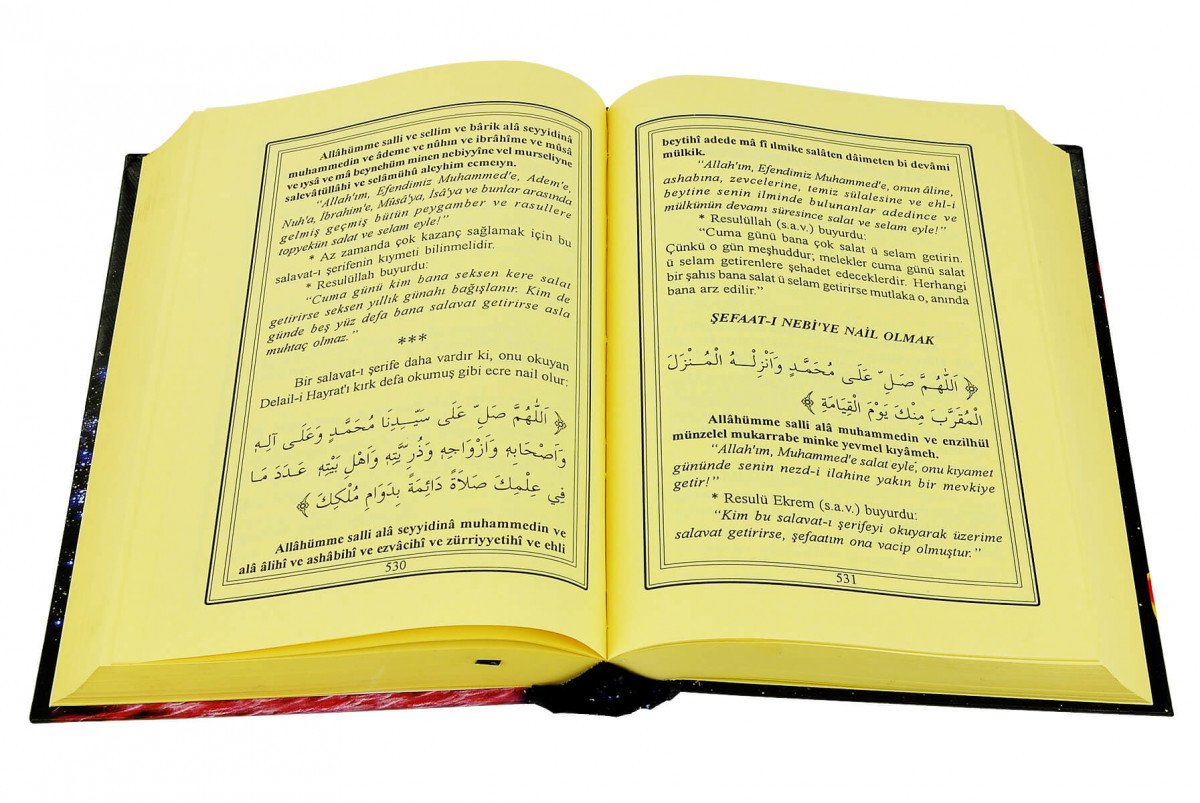 Allâhümme salli ve sellim ve bârik alâ seyyidinâ
muhammedin ve âdeme ve nûhın ve ibrâhîme ve mûsâ
ve ıysâ ve mâ beynehüm minen nebiyyîne vel murseliyne
salevâtüllâhi ve selâmühû aleyhim ecmeıyn.
“Allah'ım, Efendimiz Muhammed'e, Adem'e,
Nuh'a, İbrahim'e, Mûsâ'ya, İsâ'ya ve bunlar arasında
gelmiş geçmiş bütün peygamber ve rasullere
topyekün salat ve selam eyle!”
* Az zamanda çok kazanç sağlamak için bu
salavat-ı şerifenin kıymeti bilinmelidir.
* Resulüllah buyurdu:
“Cuma günü kim bana seksen kere salat
getirirse seksen yıllık günahı bağışlanır. Kim de
günde beş yüz defa bana salavat getirirse asla
muhtaç olmaz.”
***
Bir salavat-ı şerife daha vardır ki, onu okuyan
Delail-i Hayrat'ı kırk defa okumuş gibi ecre nail olur:
﴿ اَللّٰهُمَّ صَلِّ عَلٰى سَيِّدِنَا مُحَمَّدٍ وَعَلٰى اٰلِهٖ
وَاَصْحَابِهٖ وَاَزْوَاجِهٖ وَذُرِّيَّتِهٖ وَاَهْلِ بَيْتِهٖ عَدَدَ مَا
فِي عِلْمِكَ صَلَاةً دَائِمَةً بِدَوَامِ مُلْكِكَ ﴾
Allâhümme salli alâ seyyidinâ muhammedin ve
alâ âlihî ve ashâbihî ve ezvâcihî ve zürriyyetihî ve ehli
530
beytihî adede mâ fî ilmike salâten dâimeten bi devâmi
mülkik.
“Allah'ım, Efendimiz Muhammed'e, onun âline,
ashabına, zevcelerine, temiz sülalesine ve ehl-i
beytine senin ilminde bulunanlar adedince ve
mülkünün devamı süresince salat ve selam eyle!”
* Resulüllah (s.a.v.) buyurdu:
“Cuma günü bana çok salat ü selam getirin.
Çünkü o gün meşhuddur; melekler cuma günü salat
ü selam getirenlere şehadet edeceklerdir. Herhangi
bir şahıs bana salat ü selam getirirse mutlaka o, anında
bana arz edilir.”
ŞEFAAT-I NEBİ'YE NAİL OLMAK
﴿ اَللّٰهُمَّ صَلِّ عَلٰى مُحَمَّدٍ وَاَنْزِلْهُ الْمُنْزَلَ
الْمُقَرَّبَ مِنْكَ يَوْمَ الْقِيَامَةِ ﴾
Allâhümme salli alâ muhammedin ve enzilhül
münzelel mukarrabe minke yevmel kıyâmeh.
“Allah'ım, Muhammed'e salat eyle, onu kıyamet
gününde senin nezd-i ilahine yakın bir mevkiye
getir!”
* Resulü Ekrem (s.a.v.) buyurdu:
“Kim bu salavat-ı şerifeyi okuyarak üzerime
salavat getirirse, şefaatım ona vacip olmuştur.”
531